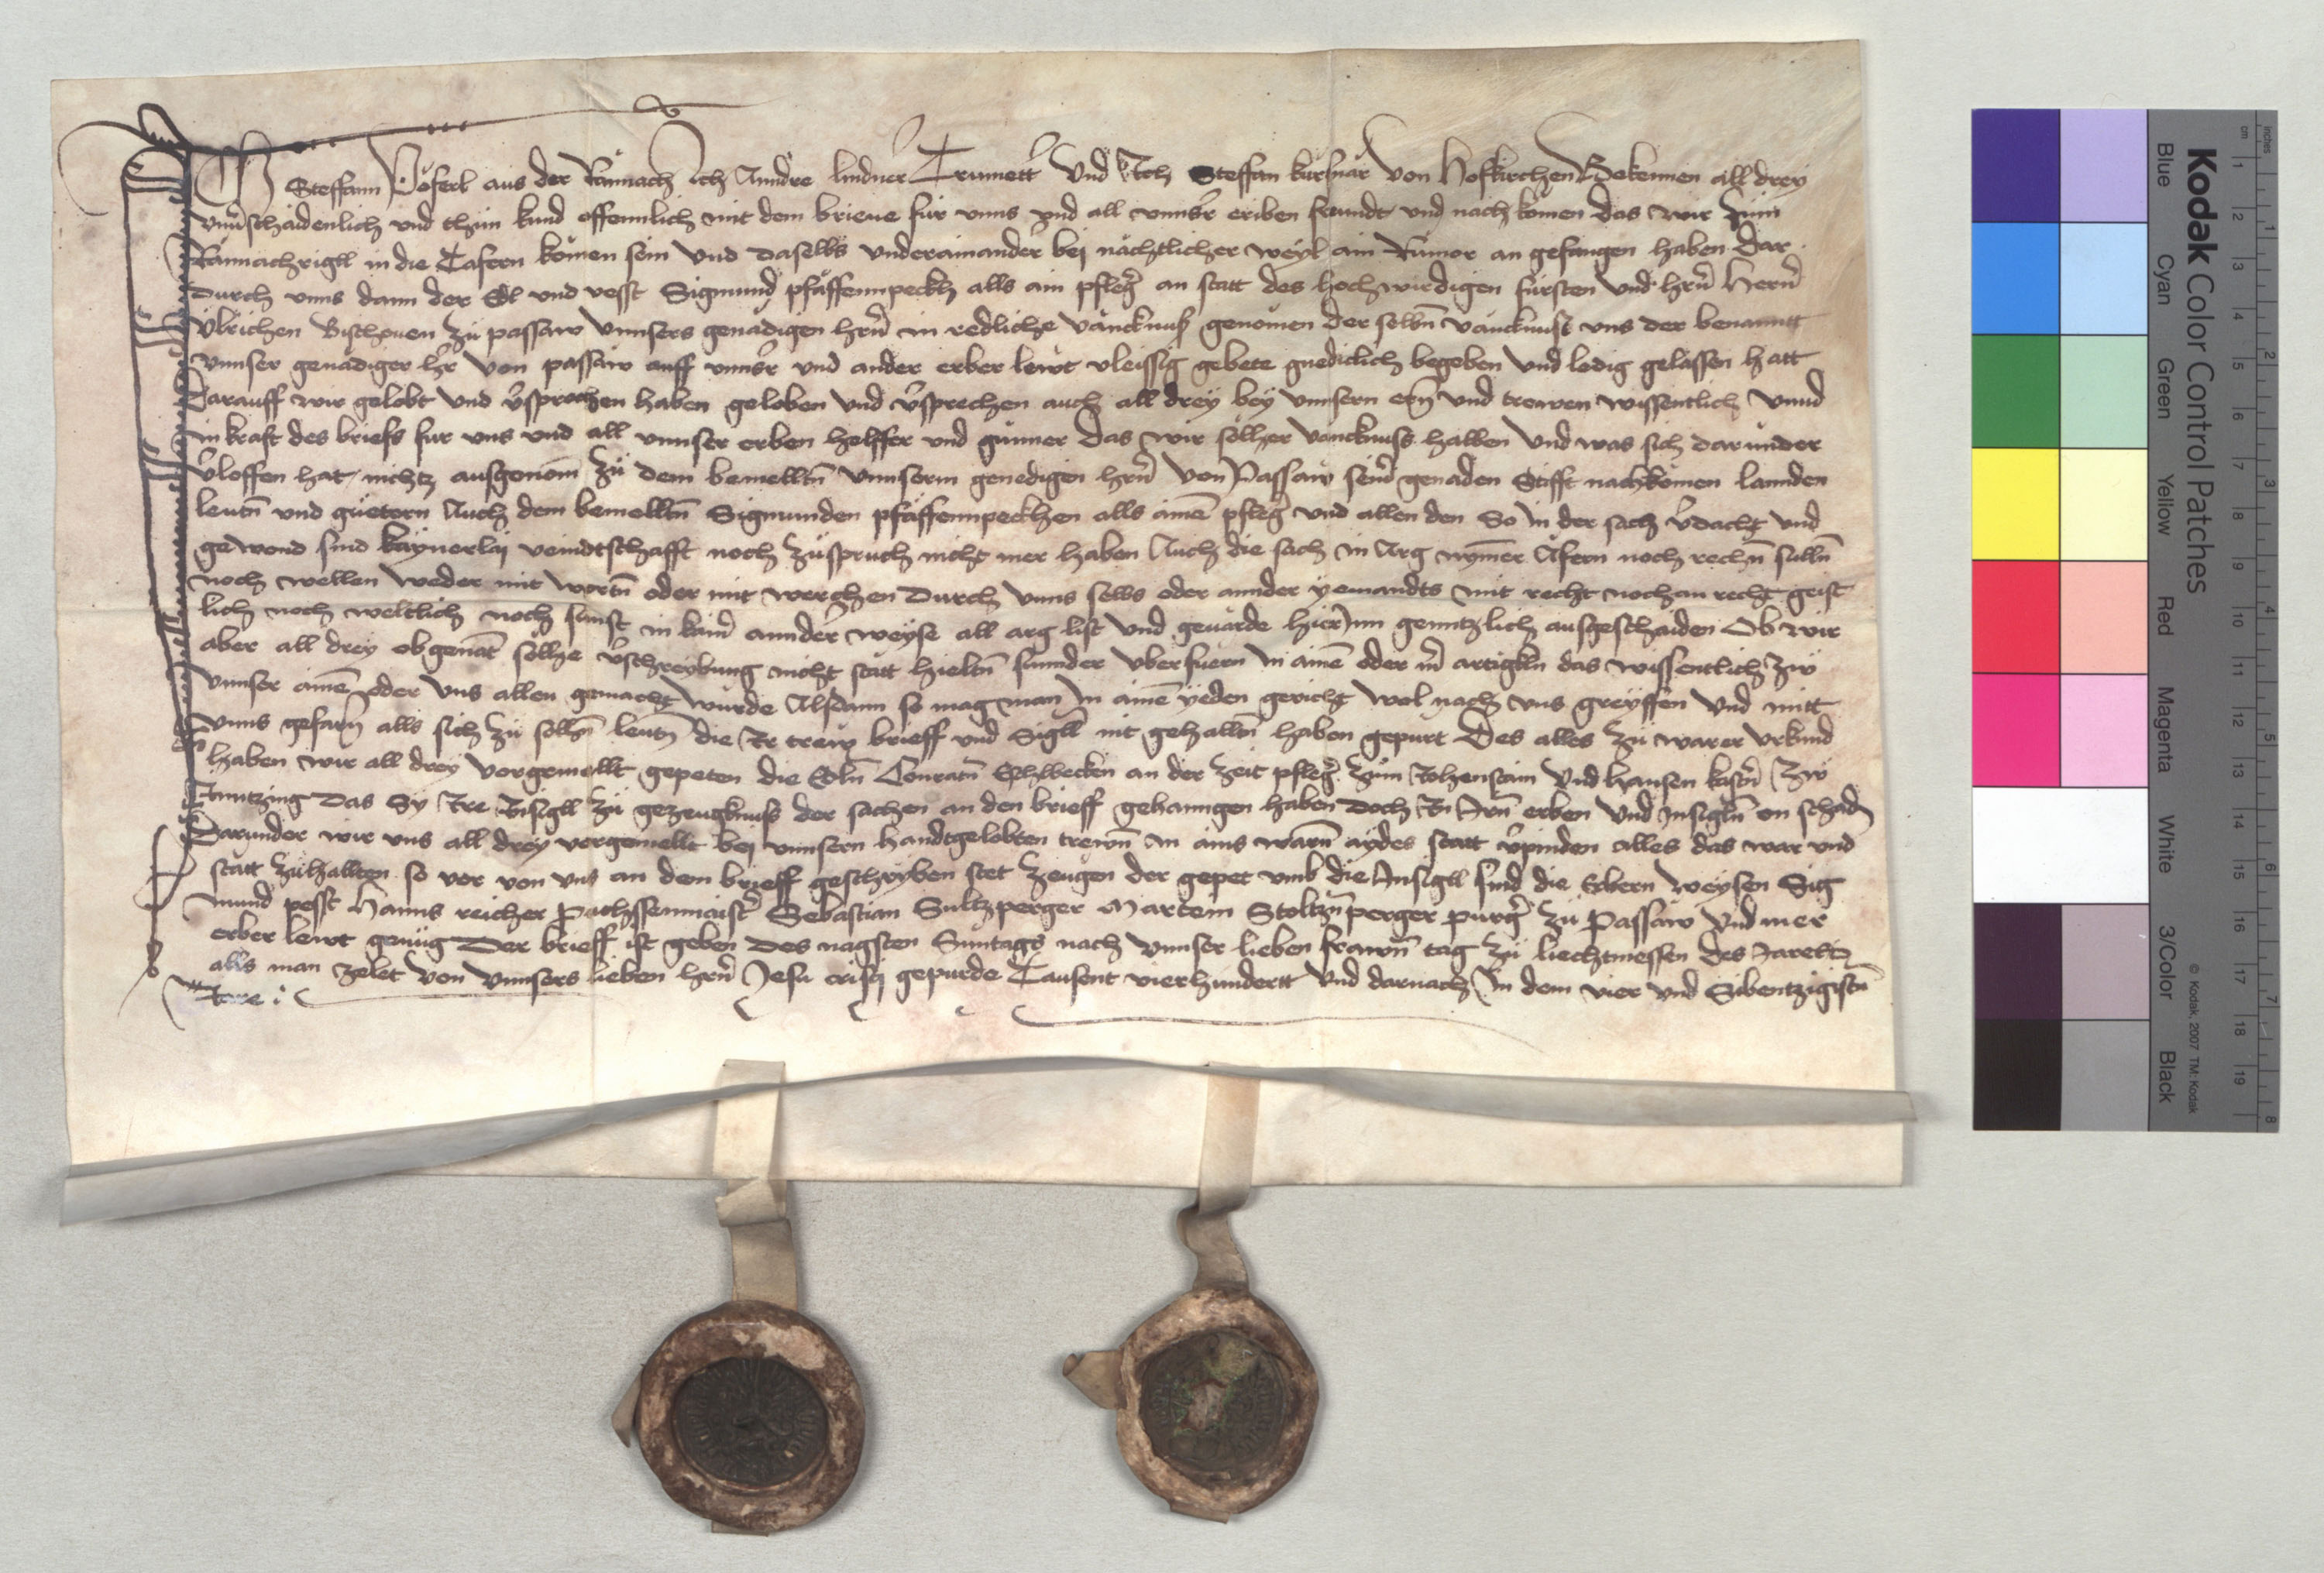 Ich Steffann Poferl aus der Rannach Ich Anndre lindner Trumett Und Ich Steffan kurssnar von Hofkirchen Bekennen all drey
unuerschaidenlich und thun kund offennlich mit dem brieue fur unns und all unnser eriben freundt und nachkomen das wir zum
Rannachrigll in die Tafern komen sein Und daselbs underainander bei nächtlicher weyl ain Rumor an gefangen haben Dar
durch unns dann der Edl und vesst Sigmund pfäffennpeckh alls ain pfleger an statt des hochwirdigen fursten und hern Hern
Ulrichen Bischouen zu passaw Unnsers genadigen hern in redliche vancknuss genomen der selbn vancknust uns der benanntt
Unnser genadiger her von passaw auff unnser und ander erber lewt vleissig gebete gnediclich begeben Und ledig gelassen hatt
Darauff wir gelobt und versprochen haben geloben und versprechen auch all drey bey unnsern ern und trewen wissentlich Unnd
in kraft des briefs fur uns und all unnser erben helffer und günner das wir söllher vancknuss halben Und was sich darunder
verloffen hat nichtz ausgenom zu dem bemelltn Unnserm genedigen hern von Passaw seinr genaden Stifft nachkomen lannden
leutn und guetern Auch dem bemelltn Sigmunden pfäffennpeckhen alls aim pfleger und allen den So in der sach verdacht und
gewond sind kaynerlaj veindtschafft noch zuspruch nicht mer haben Auch die sach in Arg nymer Äfern noch rechn sulln
noch wellen weder mit wortn oder mit werchen Durch unns selbs oder annder yemandts mit recht noch an recht geist
lich noch weltlich noch sunst in kainr annder weyse all arg list und geuärde hierinn genntzlich ausgeschaiden Ob wir
aber all drey obgenant söllhe verschreybung nicht statt hieltn sunnder uberfuern in aim oder mer artigkln das wissentlich zw
Unnser aim oder uns allen gemacht wurde Alsdann so mag man in aim yeden gericht wol nach uns greyffen Und mitt
unns gefarn alls sich zu sollhn leutn die Ir trew brieff und Sigll nit gehalltn haben gepurt Des alles zu warer urkund
haben wir all drey vorgemellt gepeten die Edln Conratn an der zeit pfleger zum Und hannsen zw
Das Sy Ire Insigll zu gezeugknuss der sachen an den brieff gehanngen haben doch In Irn erben und Insigln on schadn
Darunder wir uns all drey vorgemellt bei unnsern handtgelobten trewn in ains warn aydes statt verpinden alles das war und
statt zuhallten so vor von uns an dem brieff geschryben stet Zeugen der gepet umb die Insigll sind die Erbern weysen Sig
mund pesst Hanns reicher Puchssenmaister Sebastian Sultzperger Martein purger zu Passaw Und mer
erber lewt genüg Der brieff ist geben Des nagsten Sunntags nach unnser lieben frawn tag zu liechtmessen des Iares
alls man zelet von Unnsers lieben hern Jesu cristi gepurde Tausent vierhundertt Und darnach In dem vier und Sibentzigistn
Iare
Kodak Color Control Patches
Blue Cyan Green Yellow Red Magenta White 3/Color Black
© Kodak, 2007 TM: Kodak
cm 1 2 3 4 5 6 7 8 9 10 11 12 13 14 15 16 17 18 19
inches 1 2 3 4 5 6 7 8